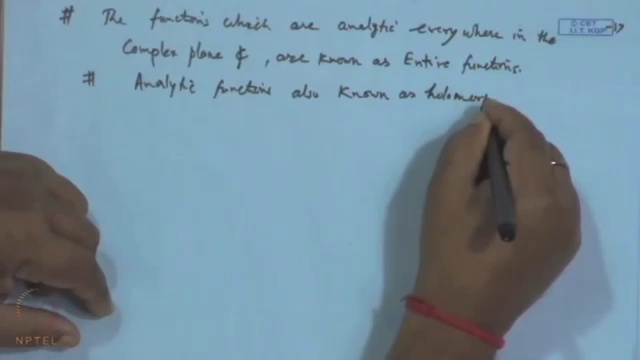 # The functions which are analytic everywhere in the
© CET
I.I.T. KGP
Complex plane ₵, are known as Entire functions.
# Analytic functions also known as holomor
NPTEL